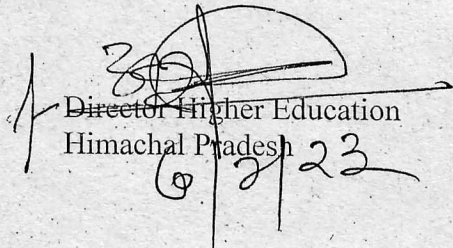 Director Higher Education
Himachal Pradesh
6/2/23